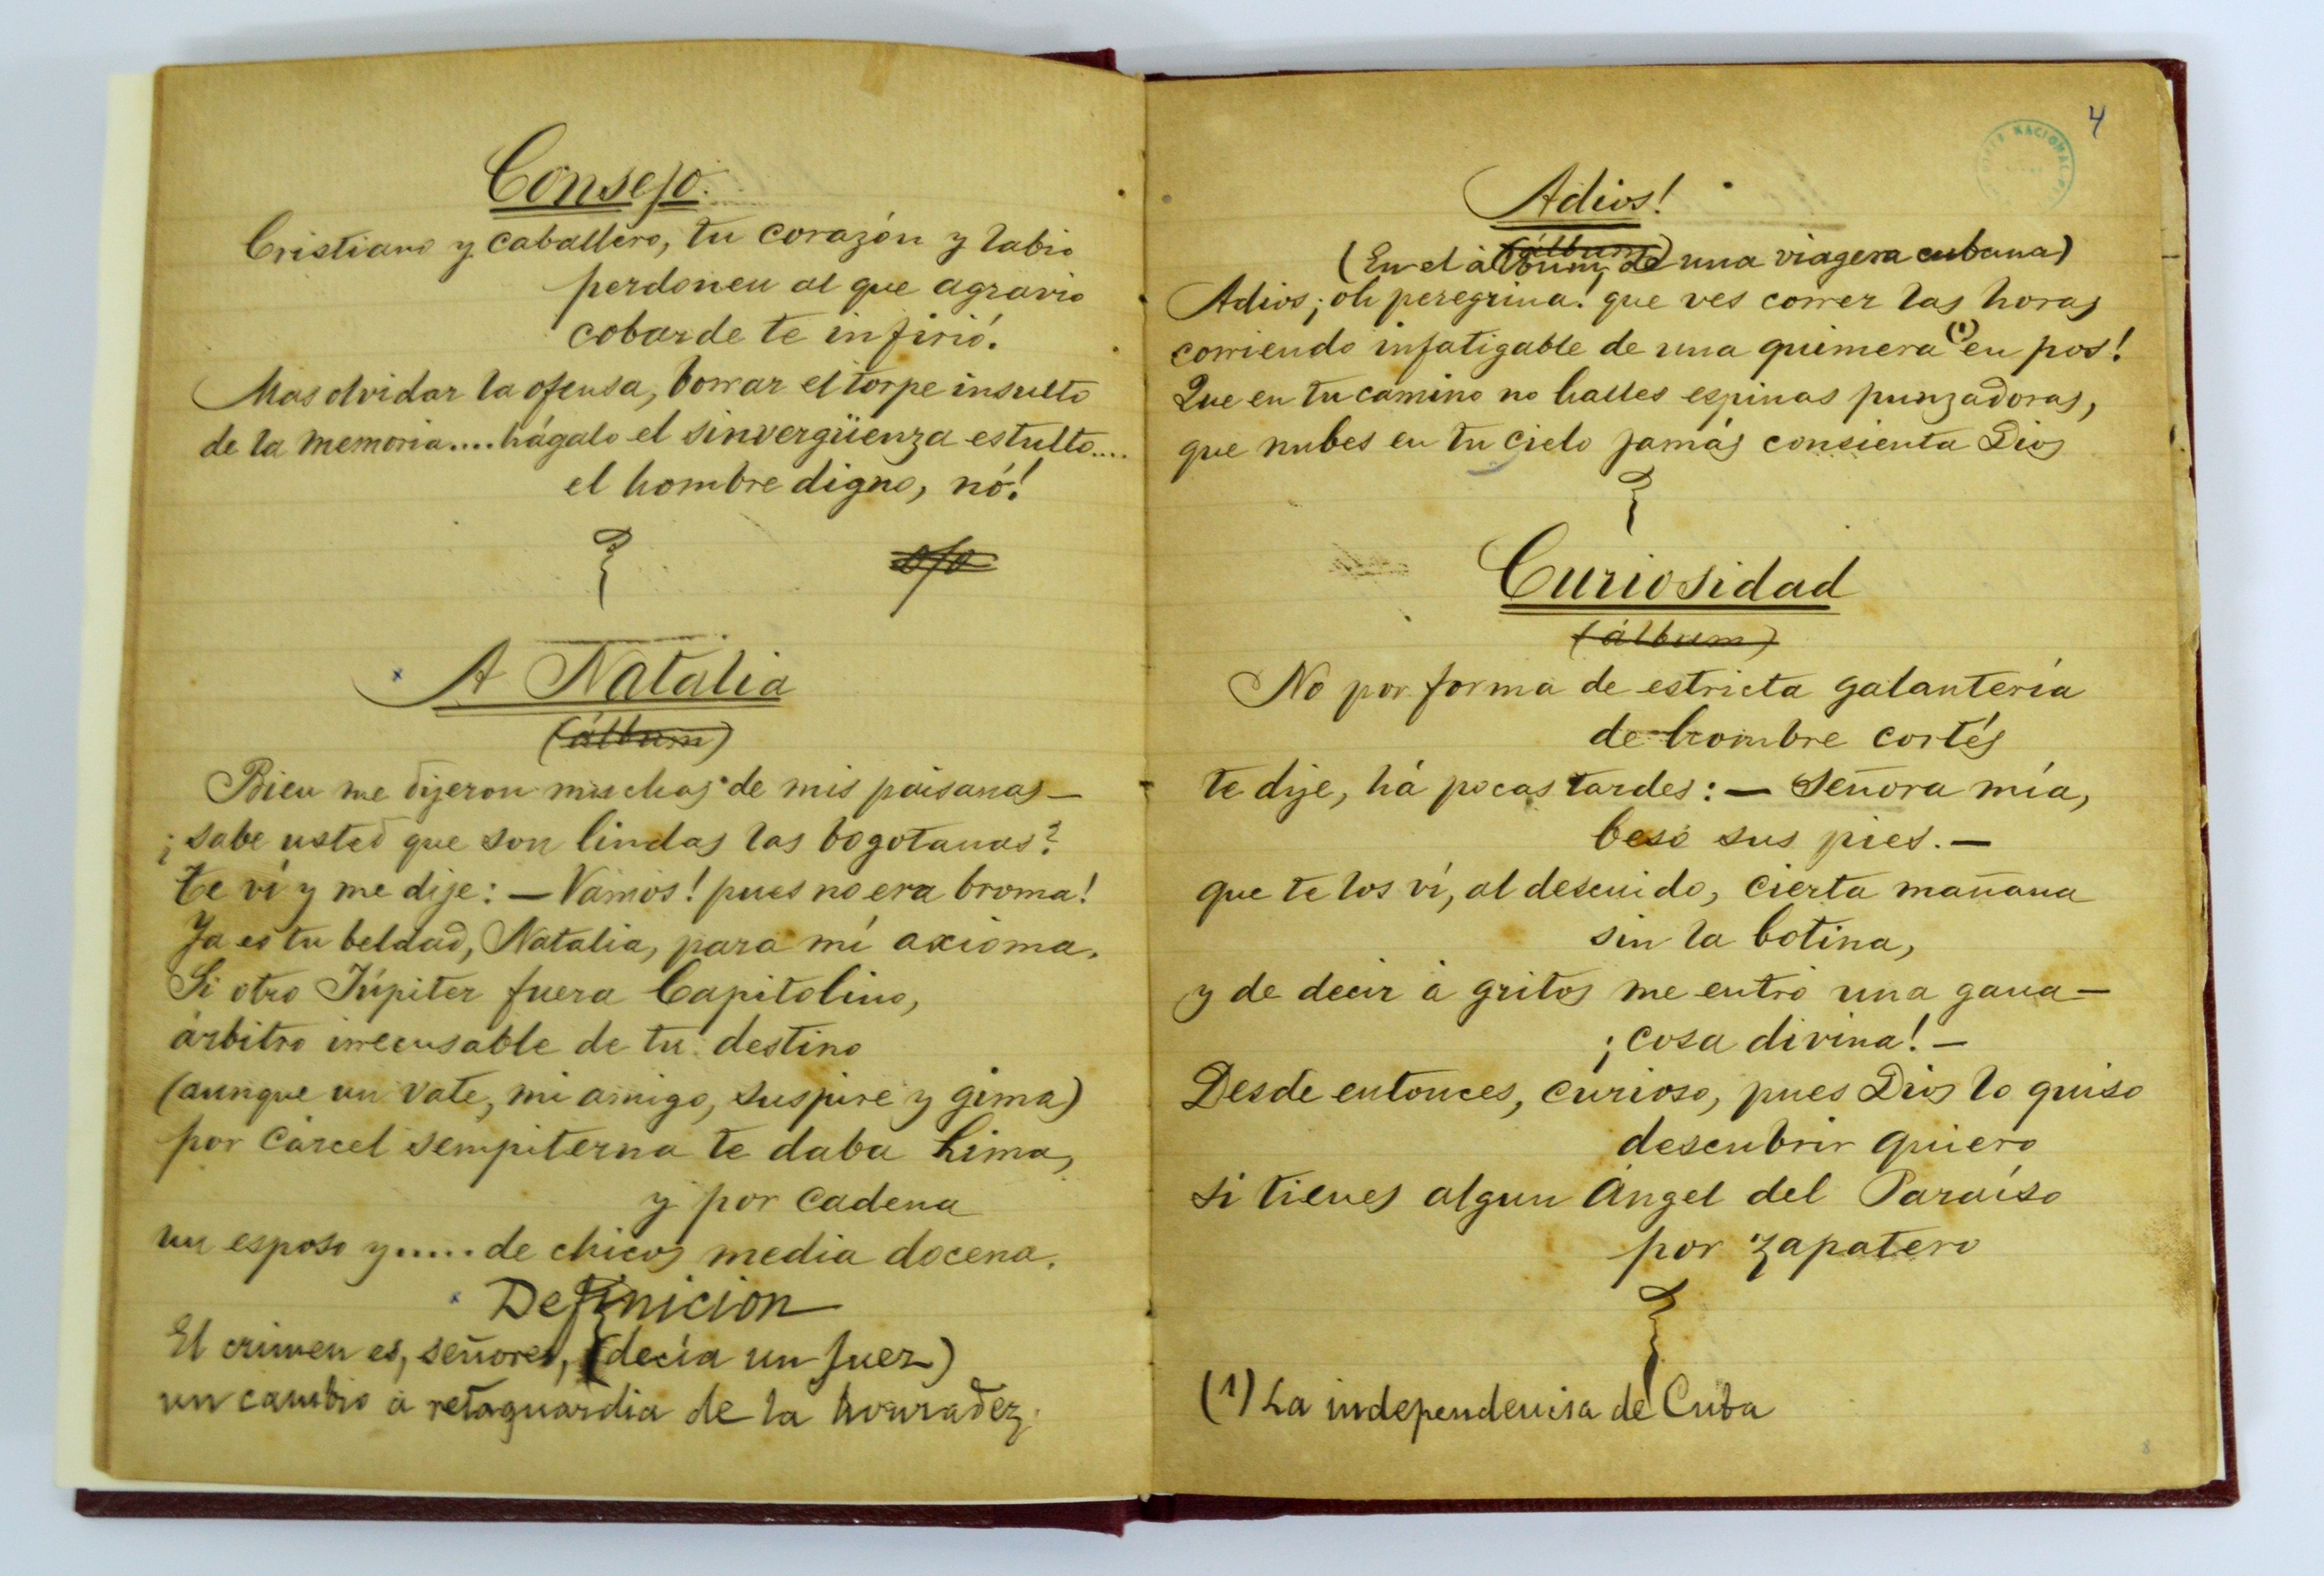 Consejo.
Cristiano y caballero, tu corazón y labio
perdonen al que agravio
cobarde te infirió.
Mas olvidar la ofensa, borrar el torpe insulto
de la memoria.... hágalo el sinvergüenza estulto....
el hombre digno, nó!
A Natalia
(álbum)
Bien me dijeron muchas de mis paisanas—
¡sabe usted que son lindas las bogotanas?
Te ví y me dije: — Vamos! pues no era broma!
Ya es tu beldad, Natalia, para mí axioma.
Si otro Júpiter fuera Capitolino,
árbitro irrecusable de tu destino
(aunque un vate, mi amigo, suspire y gima)
por cárcel sempiterna te daba Lima,
y por cadena
un esposo y..... de chicos media docena.
Definicion
El crimen es, señores, (decía un juez)
un cambio á retaguardia de la honradez.
4
NACIONAL
Adios!
(álbum)
(En el álbum de una viagera cubana)
Adios, ¡oh peregrina! que ves correr las horas
corriendo infatigable de una quimera (1) en pos!
Que en tu camino no halles espinas punzadoras,
que nubes en tu cielo jamás consienta Dios
Curiosidad
(álbum)
No por forma de estricta galantería
de hombre cortés
te dije, há pocas tardes: — Señora mía,
beso sus pies. —
que te los ví, al descuido, cierta mañana
sin la botina,
y de decir á gritos me entró una gana—
¡cosa divina! —
Desde entonces, curioso, pues Dios lo quiso
descubrir quiero
si tienes algun ángel del Paraíso
por zapatero
(1) La independencia de Cuba
8